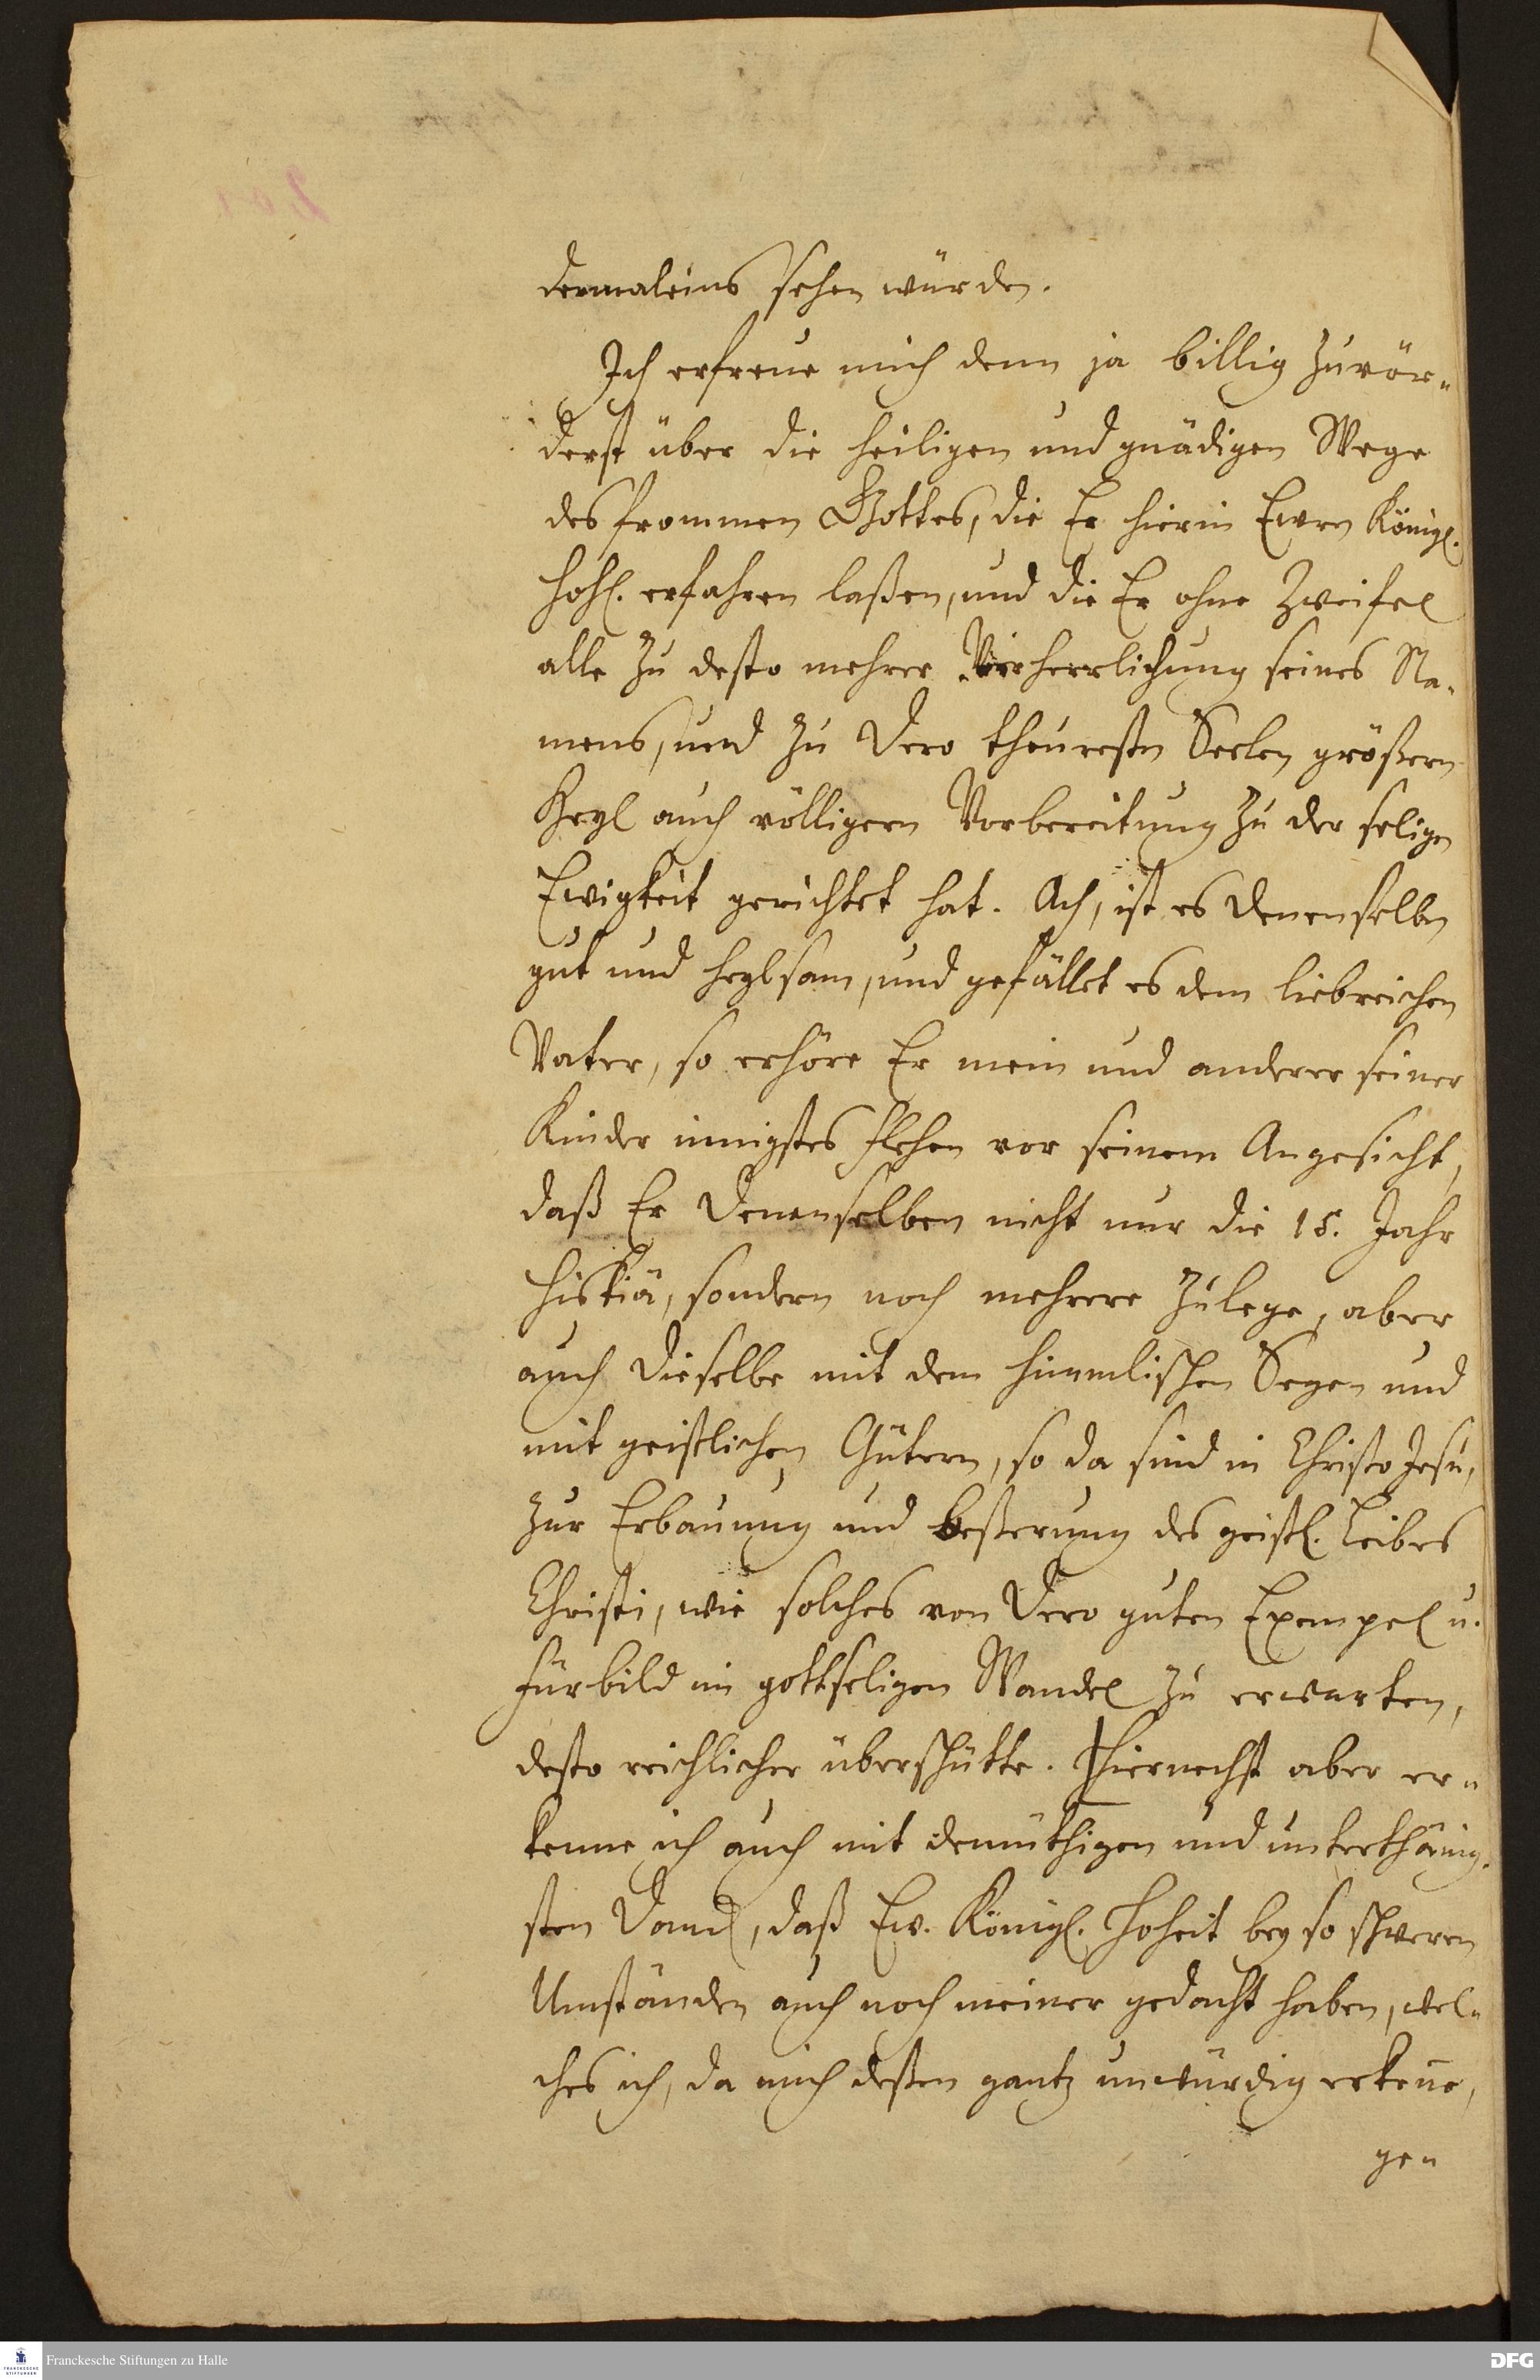 dermaleins sehen würden.
Ich erfreue mich denn ja billig zuvör-
derst über die heiligen und gnädigen Wege
des frommen Gottes, die Er hierin Ewren Königl.
Hoh. erfahren laßen, und die Er ohne Zweifel
alle zu desto mehrer Verherrlichung seines Na-
mens, und zu Dero theuresten Seelen größern
Heyl auch völligern Vorbereitung zu der seligen
Ewigkeit gerichtet hat. Ach, ist es Denenselben
gut und heylsam, und gefället es dem liebreichen
Vater, so erhöre Er mein und anderer seiner
Kinder innigstes flehen vor seinem Angesicht,
daß Er Denenselben nicht nur die 15. Jahr
Hiskiä, sondern noch mehrere zulege, aber
auch Dieselbe mit dem himmlischen Segen und
mit geistlichen Gütern, so da sind in Christo Jesu,
zur Erbauung und beßerung des geistl. Leibes
Christi, wie solches von Dero guten Exempel u.
Fürbild im gottseligen Wandel zu erwarten,
desto reichlicher überschütte. Hiernechst aber er-
kenne ich auch mit demüthigen und unterthänig-
sten Danck, daß Ew. Königl. Hoheit bey so schweren
Umständen auch noch meiner gedacht haben, wel-
ches ich, da mich deßen gantz unwürdig erkenne,
gen
Franckesche Stiftungen zu Halle
DFG